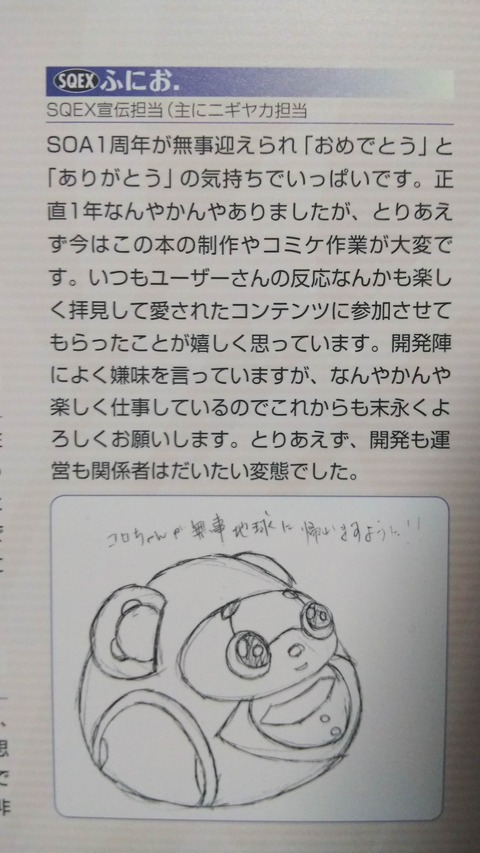 SQEX ふにお.
SQEX宣伝担当(主にニギヤカ担当
SOA1周年が無事迎えられ「おめでとう」と
「ありがとう」の気持ちでいっぱいです。正
直1年なんやかんやありましたが、とりあえ
ず今はこの本の制作やコミケ作業が大変で
す。いつもユーザーさんの反応なんかも楽し
く拝見して愛されたコンテンツに参加させて
もらったことが嬉しく思っています。開発陣
によく嫌味を言っていますが、なんやかんや
楽しく仕事しているのでこれからも末永くよ
ろしくお願いします。とりあえず、開発も運
営も関係者はだいたい変態でした。
コロちゃんが無事地球に帰れますように!!
思
で
非